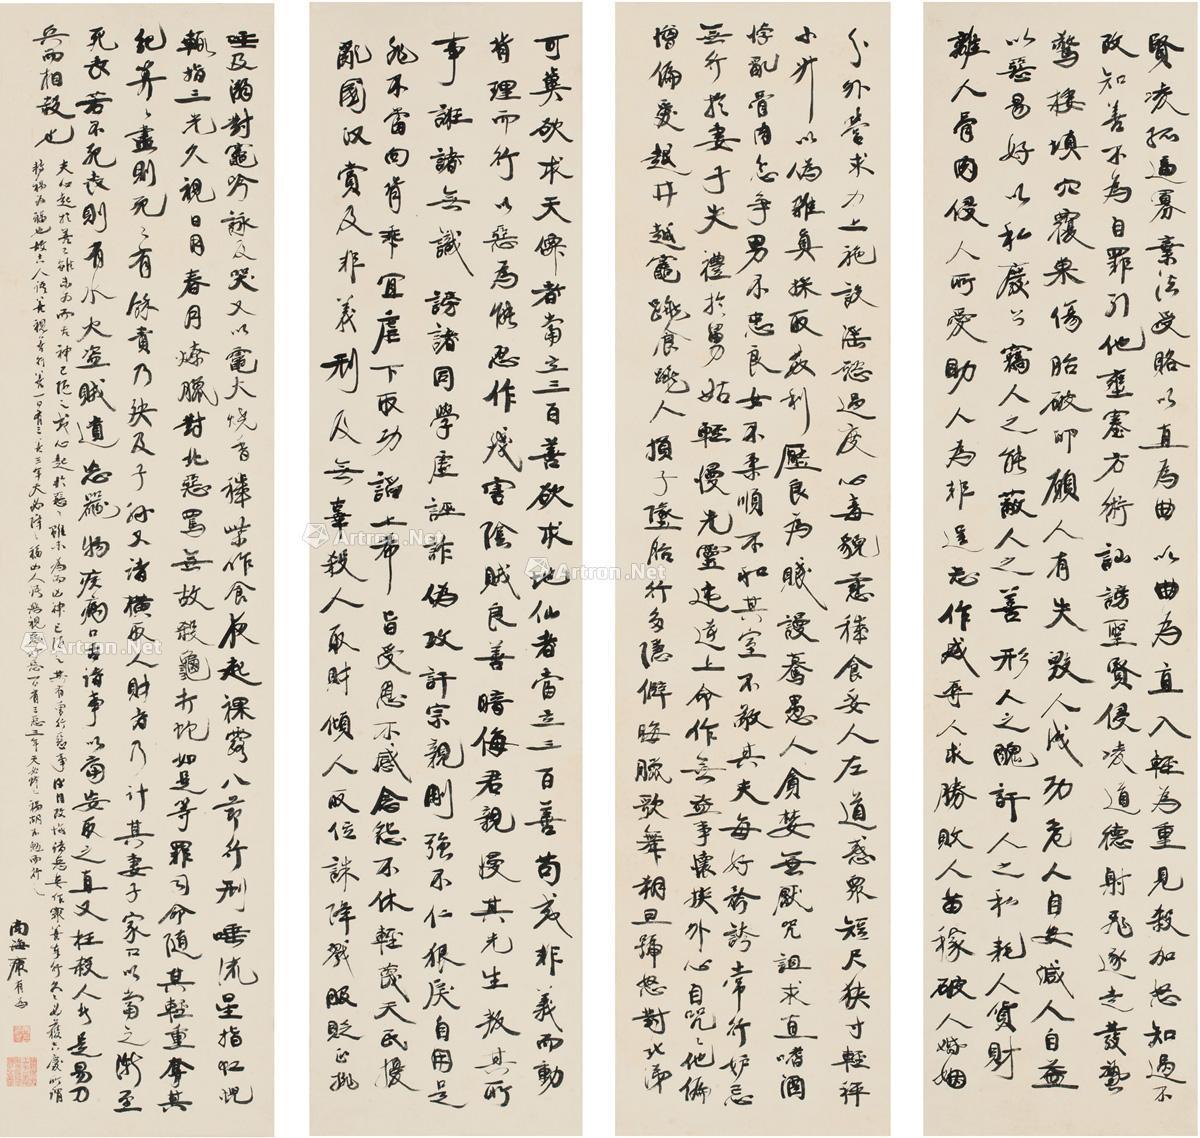 賢凌孤逼寡棄法受賂以直為曲以曲為直入輕為重見殺加怒知過不
改知善不為自罪引他壅塞方術訕謗聖賢侵凌道德射飛逐走發蟄
驚棲填穴覆巢傷胎破卵願人有失毀人成功危人自安減人自益
以惡易好以私廢公竊人之能蔽人之善形人之醜訐人之私耗人貨財
離人骨肉侵人所愛助人為非逞志作威辱人求勝敗人苗稼破人婚姻
分外營求力上施設淫慾過度心毒貌慈穢食餧人左道惑眾短尺狹寸輕秤
小升以偽雜真採取姦利壓良為賤謾驀愚人貪婪無厭咒詛求直嗜酒
悖亂骨肉忿爭男不忠良女不柔順不和其室不敬其夫每好矜誇常行妒忌
無行於妻子失禮於舅姑輕慢先靈違逆上命作無益事懷挾外心自咒咒他偏
憎偏愛越井越竈跳食跳人損子墮胎行多隱僻晦臘歌舞朔旦號怒對北涕
可冀欲求天仙者當立三百善欲求地仙者當立三百善苟或非義而動
背理而行以惡為能忍作殘害陰賊良善暗侮君親慢其先生叛其所
事誑諸無識謗諸同學虛誣詐偽攻訐宗親剛強不仁狠戾自用是
非不當向背乖宜虐下取功諂上希旨受恩不感念怨不休輕蔑天民擾
亂國政賞及非義刑及無辜殺人取財傾人取位誅降戮服貶正排
唾及溺對竈吟詠及哭又以竈火燒香穢柴作食夜起裸露八節行刑唾流星指虹霓
輒指三光久視日月春月燎獵對北惡罵無故殺龜打蛇如是等罪司命隨其輕重奪其
紀算算盡則死死有餘責乃殃及子孫又諸橫取人財者乃計其妻子家口以當之漸至
死喪若不死喪則有水火盜賊遺忘器物疾病口舌諸事以當妄取之直又枉殺人者是易刀
兵而相殺也
夫心起於善善雖未為而吉神已隨之或心起於惡惡雖未為而凶神已隨之其有曾行惡事後自改悔諸惡莫作眾善奉行久久必獲吉慶所謂
轉禍為福也故吉人語善視善行善一日有三善三年天必降之福凶人語惡視惡行惡一日有三惡三年天必降之禍胡不勉而行之
南海康有為
Artron.Net
Artron.Net
Artron.Net
Artron.Net